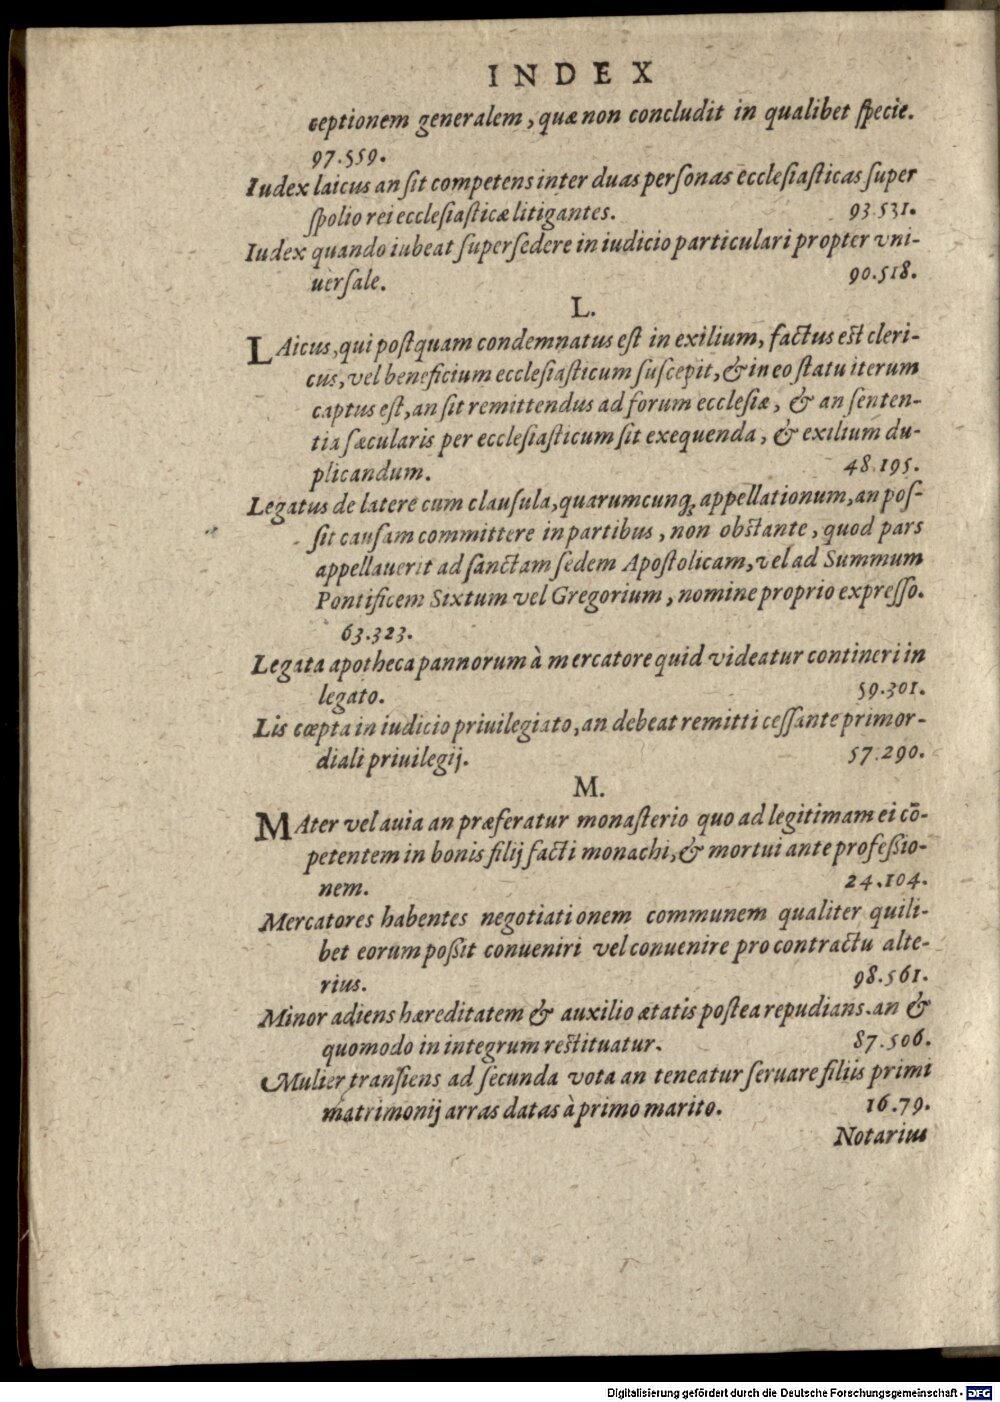 INDEX
ceptionem generalem, quæ non concludit in qualibet ſpecie.
97.559.
Iudex laicus an ſit competens inter duas perſonas eccleſiaſticas ſuper
ſpolio rei eccleſiaſticæ litigantes. 93.531.
Iudex quando iubeat ſuperſedere in iudicio particulari propter vni-
uerſale. 90.518.
L.
LAicus, qui poſtquam condemnatus eſt in exilium, factus eſt cleri-
cus, vel beneficium eccleſiaſticum ſuſcepit, & in eo ſtatu iterum
captus eſt, an ſit remittendus ad forum eccleſiæ, & an ſenten-
tia ſæcularis per eccleſiaſticum ſit exequenda, & exilium du-
plicandum. 48.195.
Legatus de latere cum clauſula, quarumcunq; appellationum, an poſ-
ſit cauſam committere in partibus, non obſtante, quod pars
appellauerit ad ſanctam ſedem Apoſtolicam, vel ad Summum
Pontificem Sixtum vel Gregorium, nomine proprio expreſſo.
63.323.
Legata apotheca pannorum à mercatore quid videatur contineri in
legato. 59.301.
Lis cœpta in iudicio priuilegiato, an debeat remitti ceſſante primor-
diali priuilegij. 57.290.
M.
MAter vel auia an præferatur monaſterio quo ad legitimam ei cō-
petentem in bonis filij facti monachi, & mortui ante profeßio-
nem. 24.104.
Mercatores habentes negotiationem communem qualiter quili-
bet eorum poßit conueniri vel conuenire pro contractu alte-
rius. 98.561.
Minor adiens hæreditatem & auxilio ætatis poſtea repudians. an &
quomodo in integrum reſtituatur. 87.506.
Mulier tranſiens ad ſecunda vota an teneatur ſeruare filiis primi
matrimonij arras datas à primo marito. 16.79.
Notarius
Digitalisierung gefördert durch die Deutsche Forschungsgemeinschaft - DFG